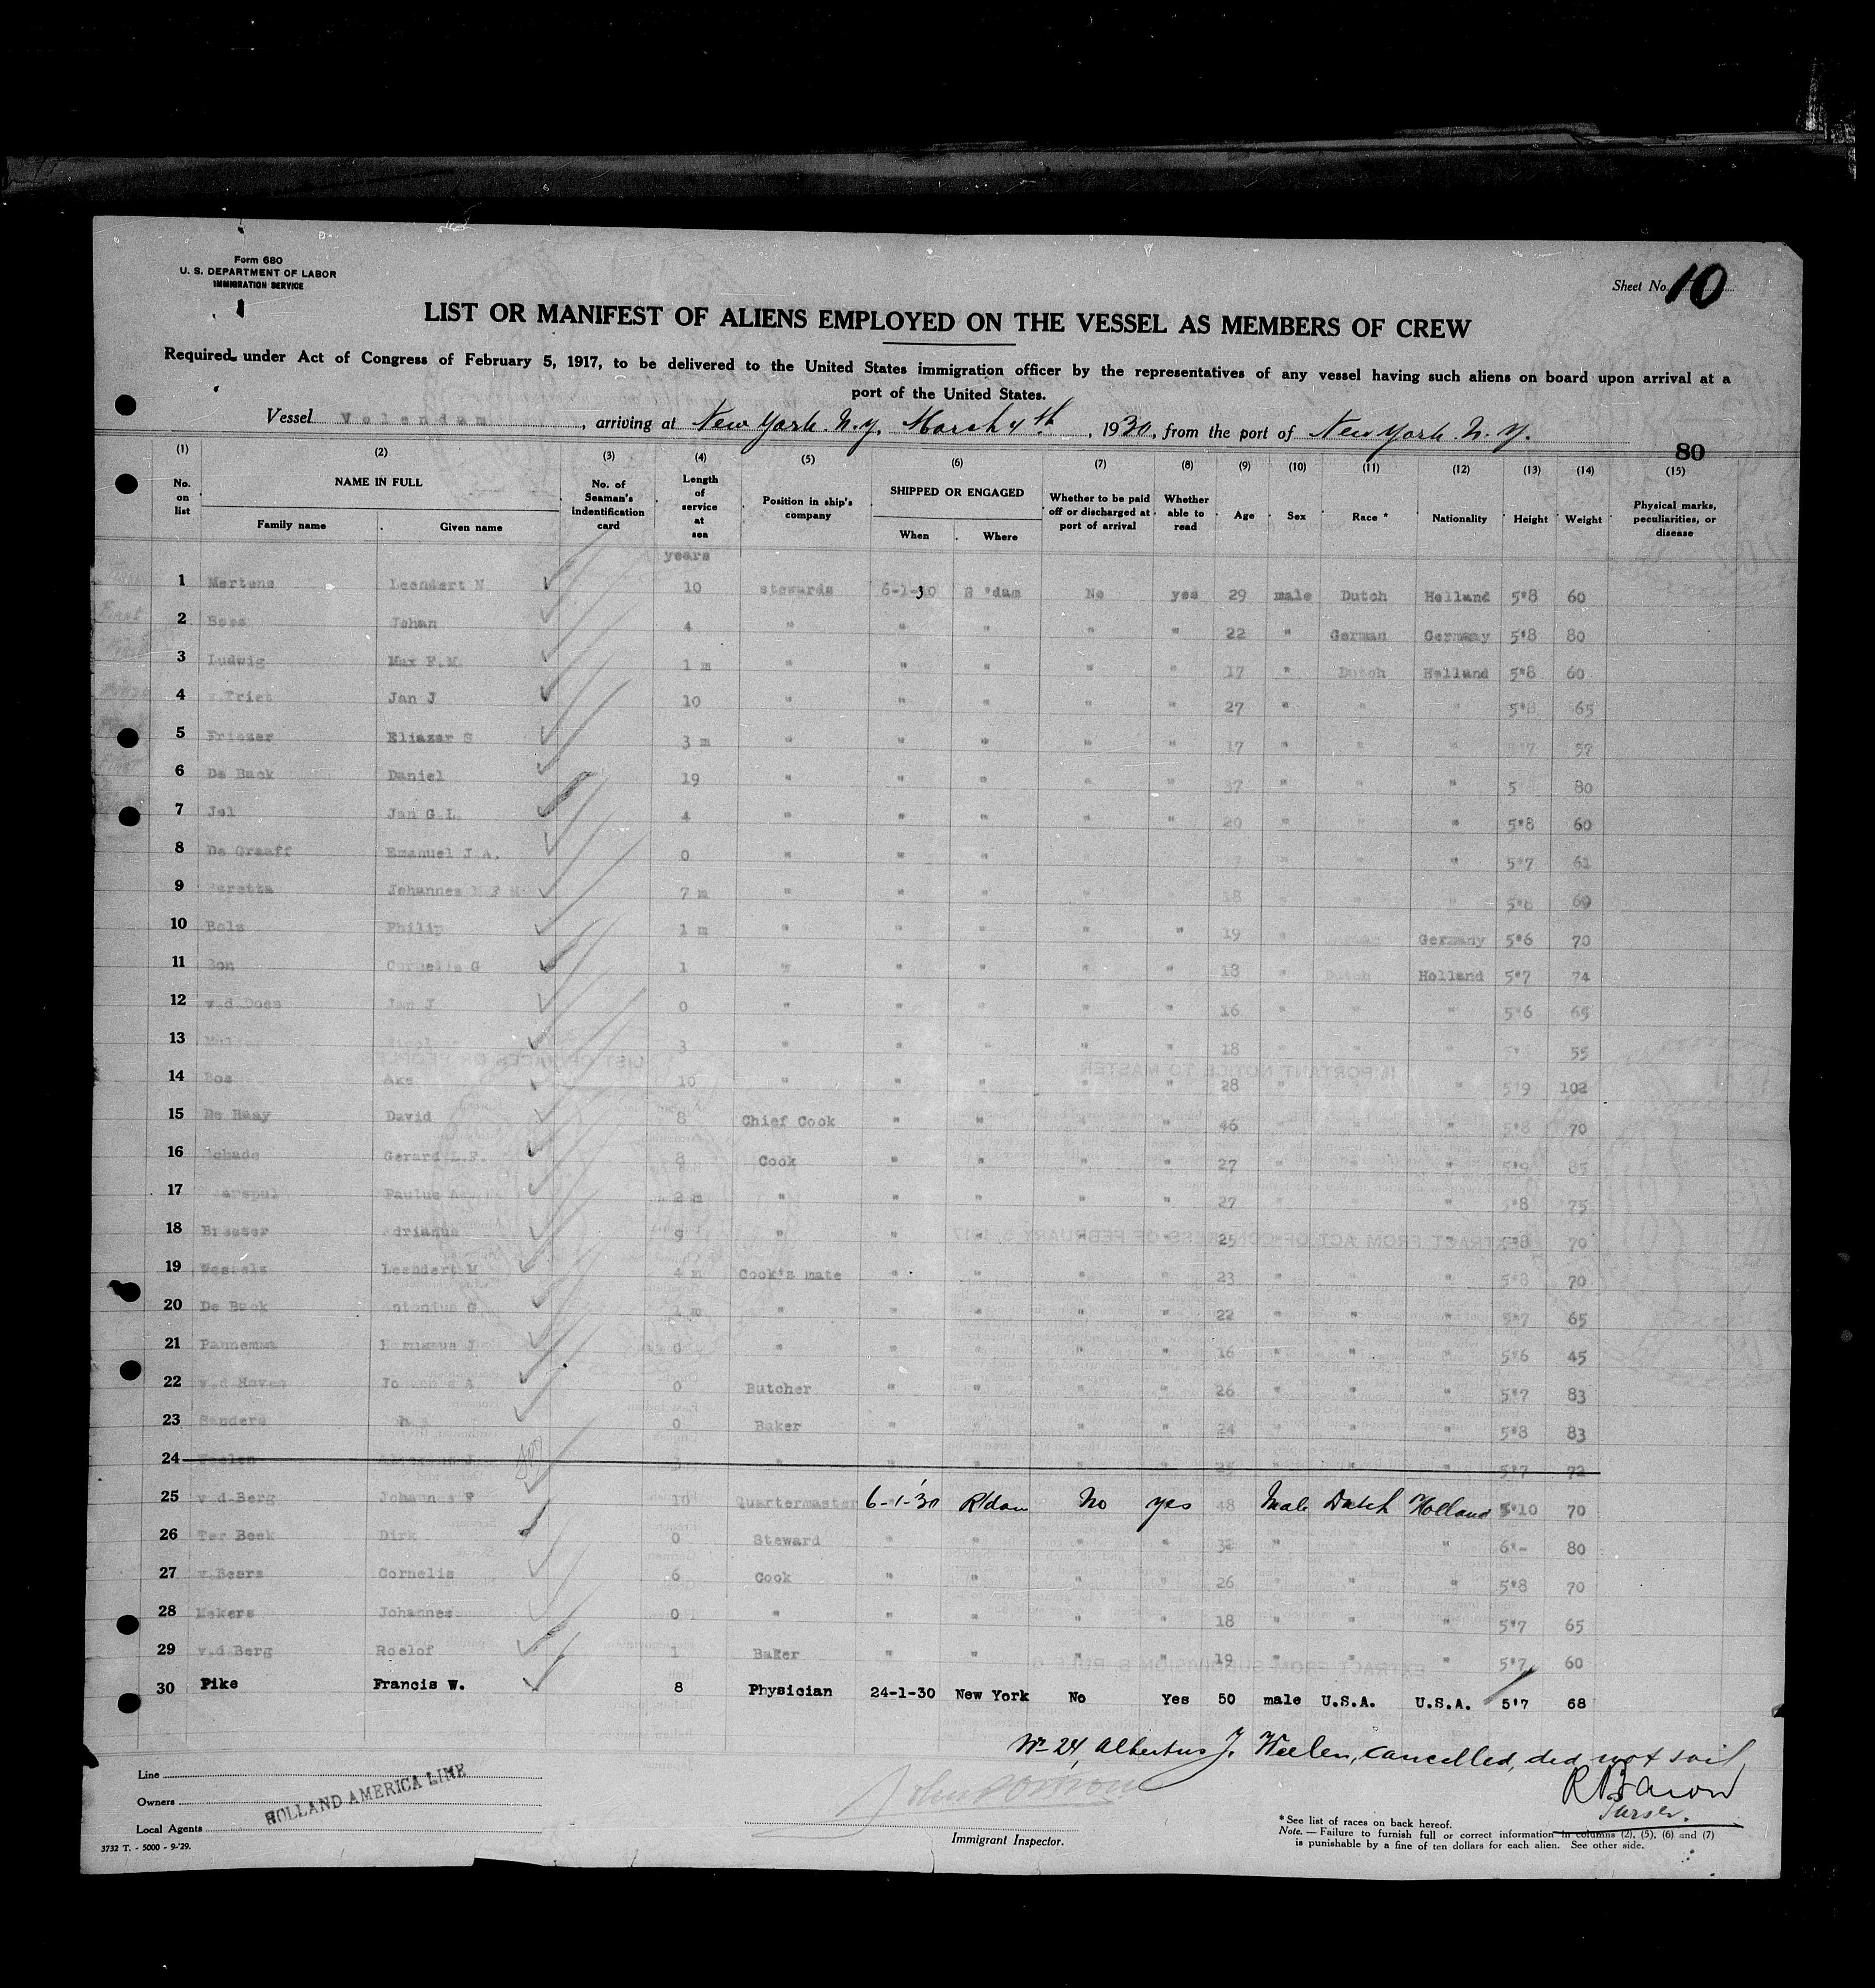 Form 680
U. S. DEPARTMENT OF LABOR
IMMIGRATION SERVICE
Sheet No. 10
LIST OR MANIFEST OF ALIENS EMPLOYED ON THE VESSEL AS MEMBERS OF CREW
Required under Act of Congress of February 5, 1917, to be delivered to the United States immigration officer by the representatives of any vessel having such aliens on board upon arrival at a
port of the United States.
Vessel Volendam, arriving at New York. N.Y. March 4th, 1930, from the port of New York. N. Y.
80
(1) (2) (3) (4) (5) (6) (7) (8) (9) (10) (11) (12) (13) (14) (15)
No. on list NAME IN FULL Family name Given name No. of Seaman's indentification card Length of service at sea Position in ship's company SHIPPED OR ENGAGED When Where Whether to be paid off or discharged at port of arrival Whether able to read Age Sex Race * Nationality Height Weight Physical marks, peculiarities, or disease
years
1 Mertens Leendert N 10 stewards 6-1-30 R'dam No yes 29 male Dutch Holland 5'8 60
2 Johan 4 " " " " " 22 " German Germany 5'8 80
3 Ludwig Max F.M. 1 m " " " " " 17 " Dutch Holland 5'8 60
4 v.Triet Jan J 10 " " " " " 27 " " " 5'8 65
5 Eliazar S 3 m " " " " " 17 " " " 57
6 De Back Daniel 19 " " " " " 37 " " " 5 80
7 Jol Jan G.L. 4 " " " " " 20 " " " 5'8 60
8 De Graaff Emanuel J.A. 0 " " " " " 5'7 61
9 Johannes 7 m " " " " 18 " " 5'8 69
10 Philip 1 m " " " " " 19 " Germany 5'6 70
11 Bon Cornelis G 1 " " " " " 18 " Dutch Holland 5'7 74
12 v.d.Does Jan J 0 " " " " " 16 " " " 5'6 65
13 3 " " " " " 18 " " " 55
14 Bos 10 " " " " " 28 " " 5'9 102
15 De Haay David 8 Chief Cook " " " " 46 " " " 5'8 70
16 Schade Gerard L.F. 8 Cook " " " " 27 " " " 5'9 85
17 Paulus 2 m " " " " " 27 " " 5'8 75
18 Adrianus 9 " " " " " 25 " " " 5'8 70
19 Wessels Leendert M 4 m Cook's mate " " " " 23 " " " 5'8 70
20 De Back Antonius G. 1 m " " " " " 22 " " " 5'7 65
21 Panneman 0 " " " " " 16 " " " 5'6 45
22 v.d Hoven 0 Butcher " " " " 26 " " " 5'7 83
23 Sanders 0 Baker " " " " 24 " " " 5'8 83
24 Weelen Albertus J. 3 " 25 5'7 72
25 v.d.Berg Johannes F 10 Quartermaster 6-1-'30 R'dam No yes 48 Male Dutch Holland 5'10 70
26 Ter Beek Dirk 0 Steward " " " " 32 " " " 6'- 80
27 v.Beers Cornelis 6 Cook " " " " 26 " " " 5'8 70
28 Mekers Johannes 0 " " " " " 18 " " " 5'7 65
29 v.d Berg Roelof 1 Baker " " " " 19 " " " 5'7 60
30 Pike Francis W. 8 Physician 24-1-30 New York No Yes 50 male U.S.A. U.S.A. 5'7 68
No 24, Albertus J. Weelen, cancelled, did not sail
Purser.
Line
Owners
HOLLAND AMERICA LINE
Local Agents
3732 T. - 5000 - 9-'29.
Immigrant Inspector.
* See list of races on back hereof.
Note. — Failure to furnish full or correct information in columns (2), (5), (6) and (7)
is punishable by a fine of ten dollars for each alien. See other side.